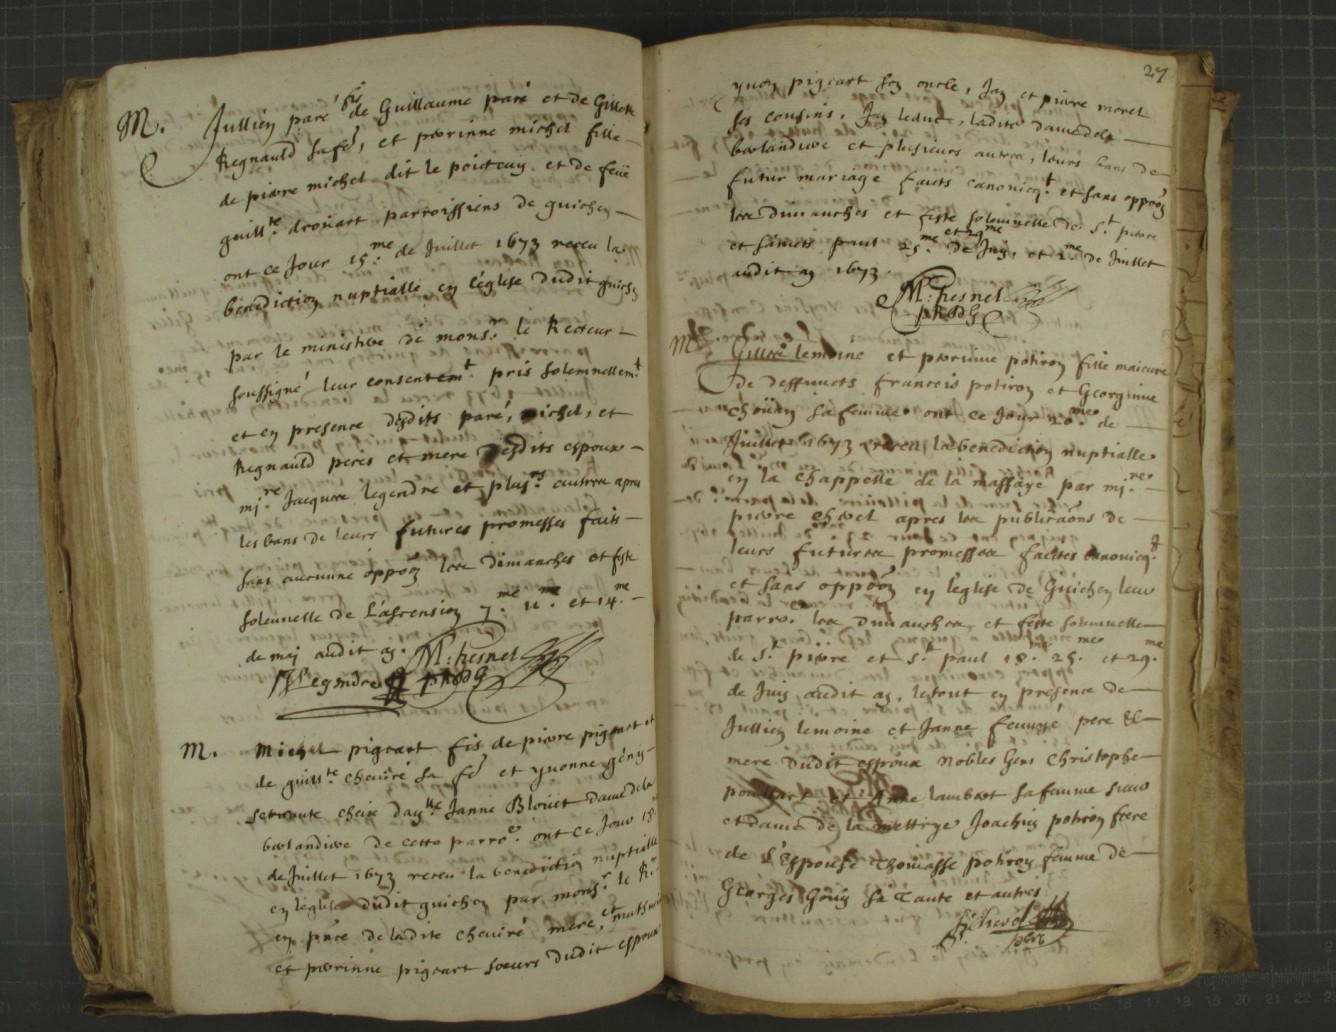 M. Jullien paré fils de Guillaume paré et de Gillette
Regnauld sa fe, et perrinne michel fille
de pierre michel dit le poicteuy, et de feüe
guillte drouart parroissiens de guichen
ont ce jour 15.me de Juillet 1673 receu la
benediction nuptialle en l'église dudit guichen
par le ministere de monsr le Recteur
soussigné leur consentemt pris solemnellemt
et en presence desdits paré, michel, et
Regnauld peres et mere desdits espoux
mire Jacques legendre et plusrs autres apres
les bans de leurs futures promesses faits
sans aucunne oppoon les dimanches et feste
solemnelle de L'ascension 7.me 11.me et 14.me
de maj audit an. M: fresnel
Legendre
M. Michel pigeart fis de pierre pigeart et
de guillte cheuiré sa fe et yvonne
seruante cheix dalle Janne Bloüet dame de la
berlandiere de cette parroe ont ce Jour 15
de Juillet 1673 receu la benediction nuptialle
en l'église dudit guichen par monsr le Rr
en pnce de ladite cheuiré mere, et
et perrinne pigeart soeurs dudit espoux
27
yvon pigeart son oncle, Jan et pierre morel
ses cousins, Jan leduc, ladite dame de la
berlandiere et plusieurs autres, leurs bans de
futur mariage faicts canonicqt et sans oppoon
les dimanches et feste solemnelle de St pierre
et sainct paul 25.me et 29me de Juin, et 2.me de Juillet
audit an 1673.
M: fresnel
M. Gilles lemoine et perrinne potiron fille maieure
de deffuncts francois potiron et Georginne
choüan sa femme ont ce Jour 20.me de
Juillet 1673 receu la benediction nuptialle
en la chappelle de la massaye par mi.re
pierre chevel apres les publicaons de
leurs futures promesses faictes canonicqt
et sans oppoon en l'eglise de Guichen leur
parroe les dimanches et feste solemnelle
de St pierre et St paul 18. 25.me et 29.me
de Juin audit an, le tout en presence de
Jullien lemoine et Janne feuuré pere &
mere dudit espoux nobles gens Christophe
et Anne lambert sa femme sieur
et dame de la mettrye Joachin potiron frere
de L'espouse Thomasse potiron femme de
Georges Goüin sa Tante et autres